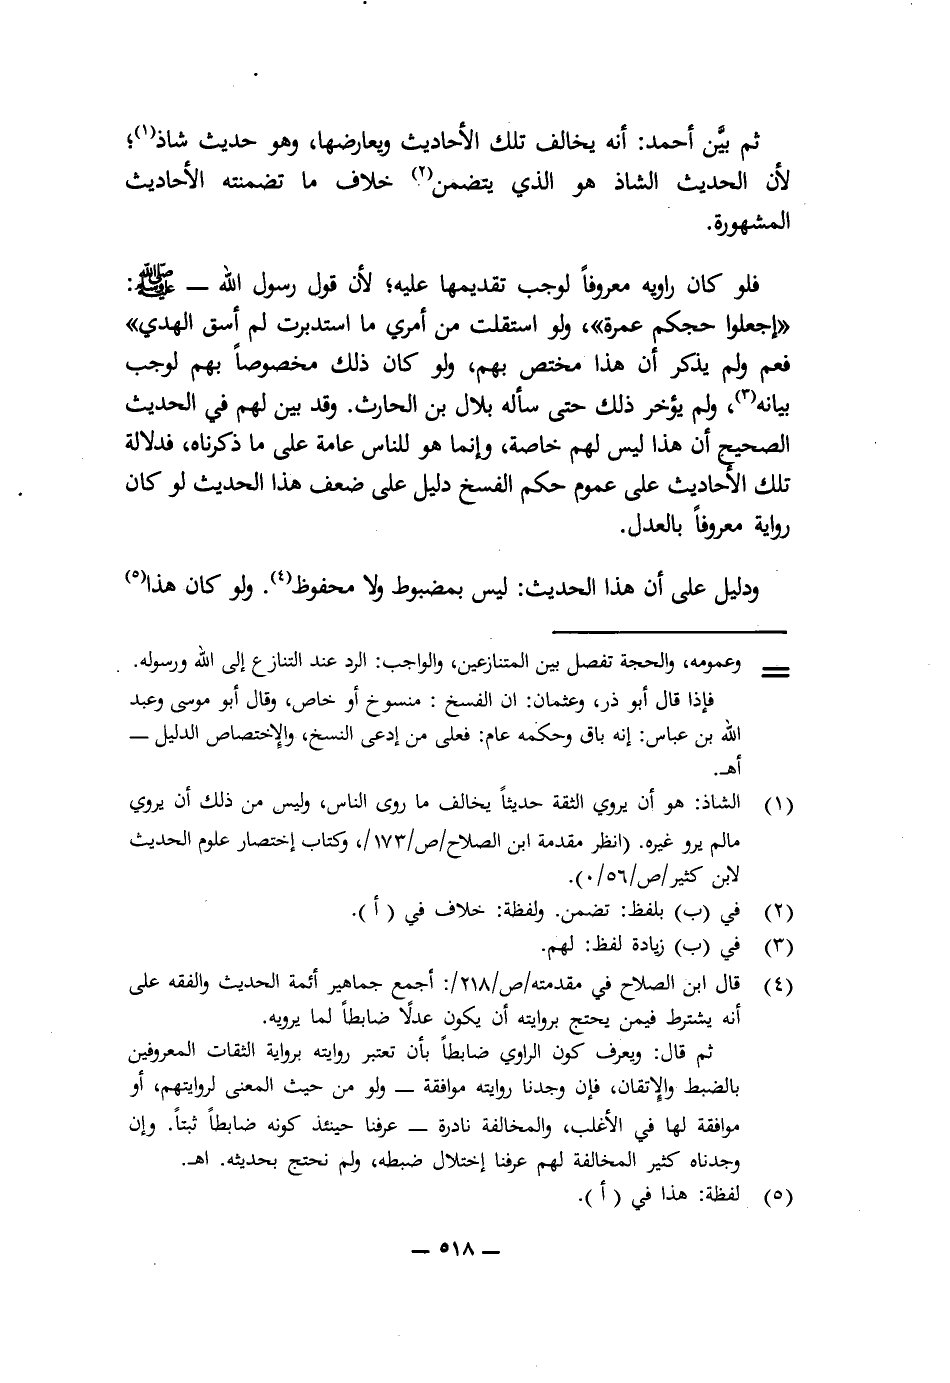 ثم بيَّن أحمد: أنه يخالف تلك الأحاديث ويعارضها، وهو حديث شاذ(١)؛
لأن الحديث الشاذ هو الذي يتضمن(٢) خلاف ما تضمنته الأحاديث
المشهورة.
فلو كان راويه معروفاً لوجب تقديمها عليه؛ لأن قول رسول الله — ﷺ:
«إجعلوا حجكم عمرة»، ولو استقلت من أمري ما استدبرت لم أسق الهدي»
فعم ولم يذكر أن هذا مختص بهم، ولو كان ذلك مخصوصاً بهم لوجب
بيانه(٣)، ولم يؤخر ذلك حتى سأله بلال بن الحارث. وقد بين لهم في الحديث
الصحيح أن هذا ليس لهم خاصة، وإنما هو للناس عامة على ما ذكرناه، فدلالة
تلك الأحاديث على عموم حكم الفسخ دليل على ضعف هذا الحديث لو كان
رواية معروفاً بالعدل.
ودليل على أن هذا الحديث: ليس بمضبوط ولا محفوظ(٤). ولو كان هذا(٥)
= وعمومه، والحجة تفصل بين المتنازعين، والواجب: الرد عند التنازع إلى الله ورسوله.
فإذا قال أبو ذر، وعثمان: ان الفسخ : منسوخ أو خاص، وقال أبو موسى وعبد
الله بن عباس: إنه باق وحكمه عام: فعلى من إدعى النسخ، والإختصاص الدليل —
أهـ.
(١) الشاذ: هو أن يروي الثقة حديثاً يخالف ما روى الناس، وليس من ذلك أن يروي
مالم يرو غيره. (انظر مقدمة ابن الصلاح/ص/١٧٣/، وكتاب إختصار علوم الحديث
لابن كثير/ص/٥٦/٠).
(٢) في (ب) بلفظ: تضمن. ولفظة: خلاف في ( أ ).
(٣) في (ب) زيادة لفظ: لهم.
(٤) قال ابن الصلاح في مقدمته/ص/٢١٨/: أجمع جماهير أئمة الحديث والفقه على
أنه يشترط فيمن يحتج بروايته أن يكون عدلًا ضابطاً لما يرويه.
ثم قال: ويعرف كون الراوي ضابطاً بأن تعتبر روايته برواية الثقات المعروفين
بالضبط والإتقان، فإن وجدنا روايته موافقة — ولو من حيث المعنى لروايتهم، أو
موافقة لها في الأغلب، والمخالفة نادرة — عرفنا حينئذ كونه ضابطاً ثبتاً. وإن
وجدناه كثير المخالفة لهم عرفنا إختلال ضبطه، ولم نحتج بحديثه. اهـ.
(٥) لفظة: هذا في ( أ ).
— ٥١٨ —